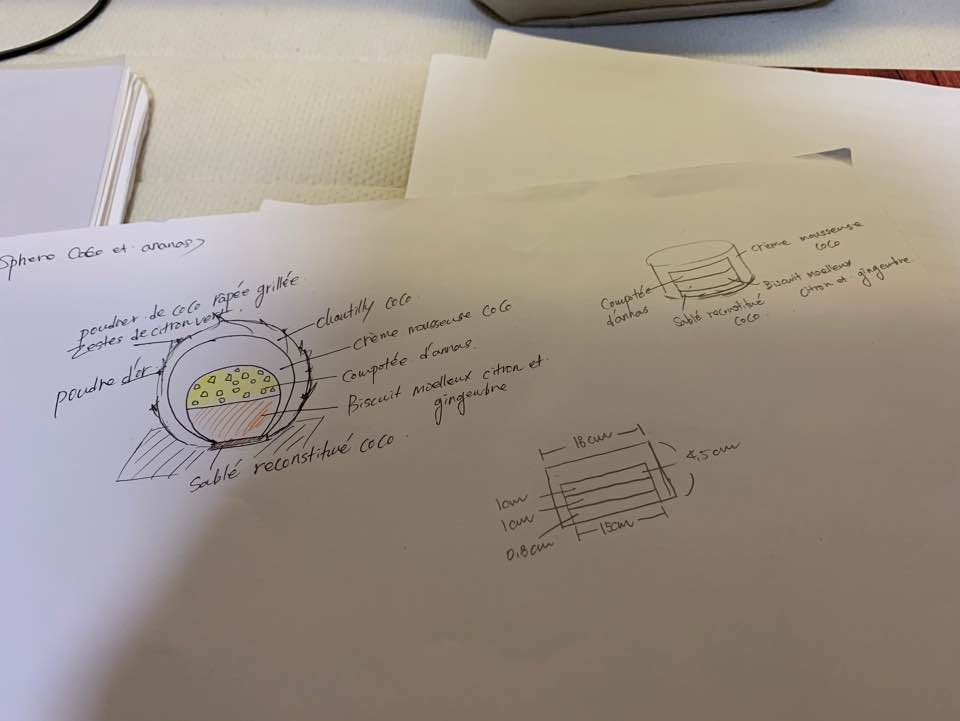 Sphere CoCo et ananas
poudrer de coco rapée grillée
Zestes de citron vert.
poudre d'or
chantilly coco.
crème mousseuse coco
compotée d'annas.
Biscuit moelleux citron et
gingembre
Sablé reconstitué coco.
crème mousseuse
coco
Biscuit moelleux
citron et gingembre
Compotée
d'annas
Sablé reconstitué
coco.
18cm
4,5cm
1cm
1cm
0,8cm
15cm